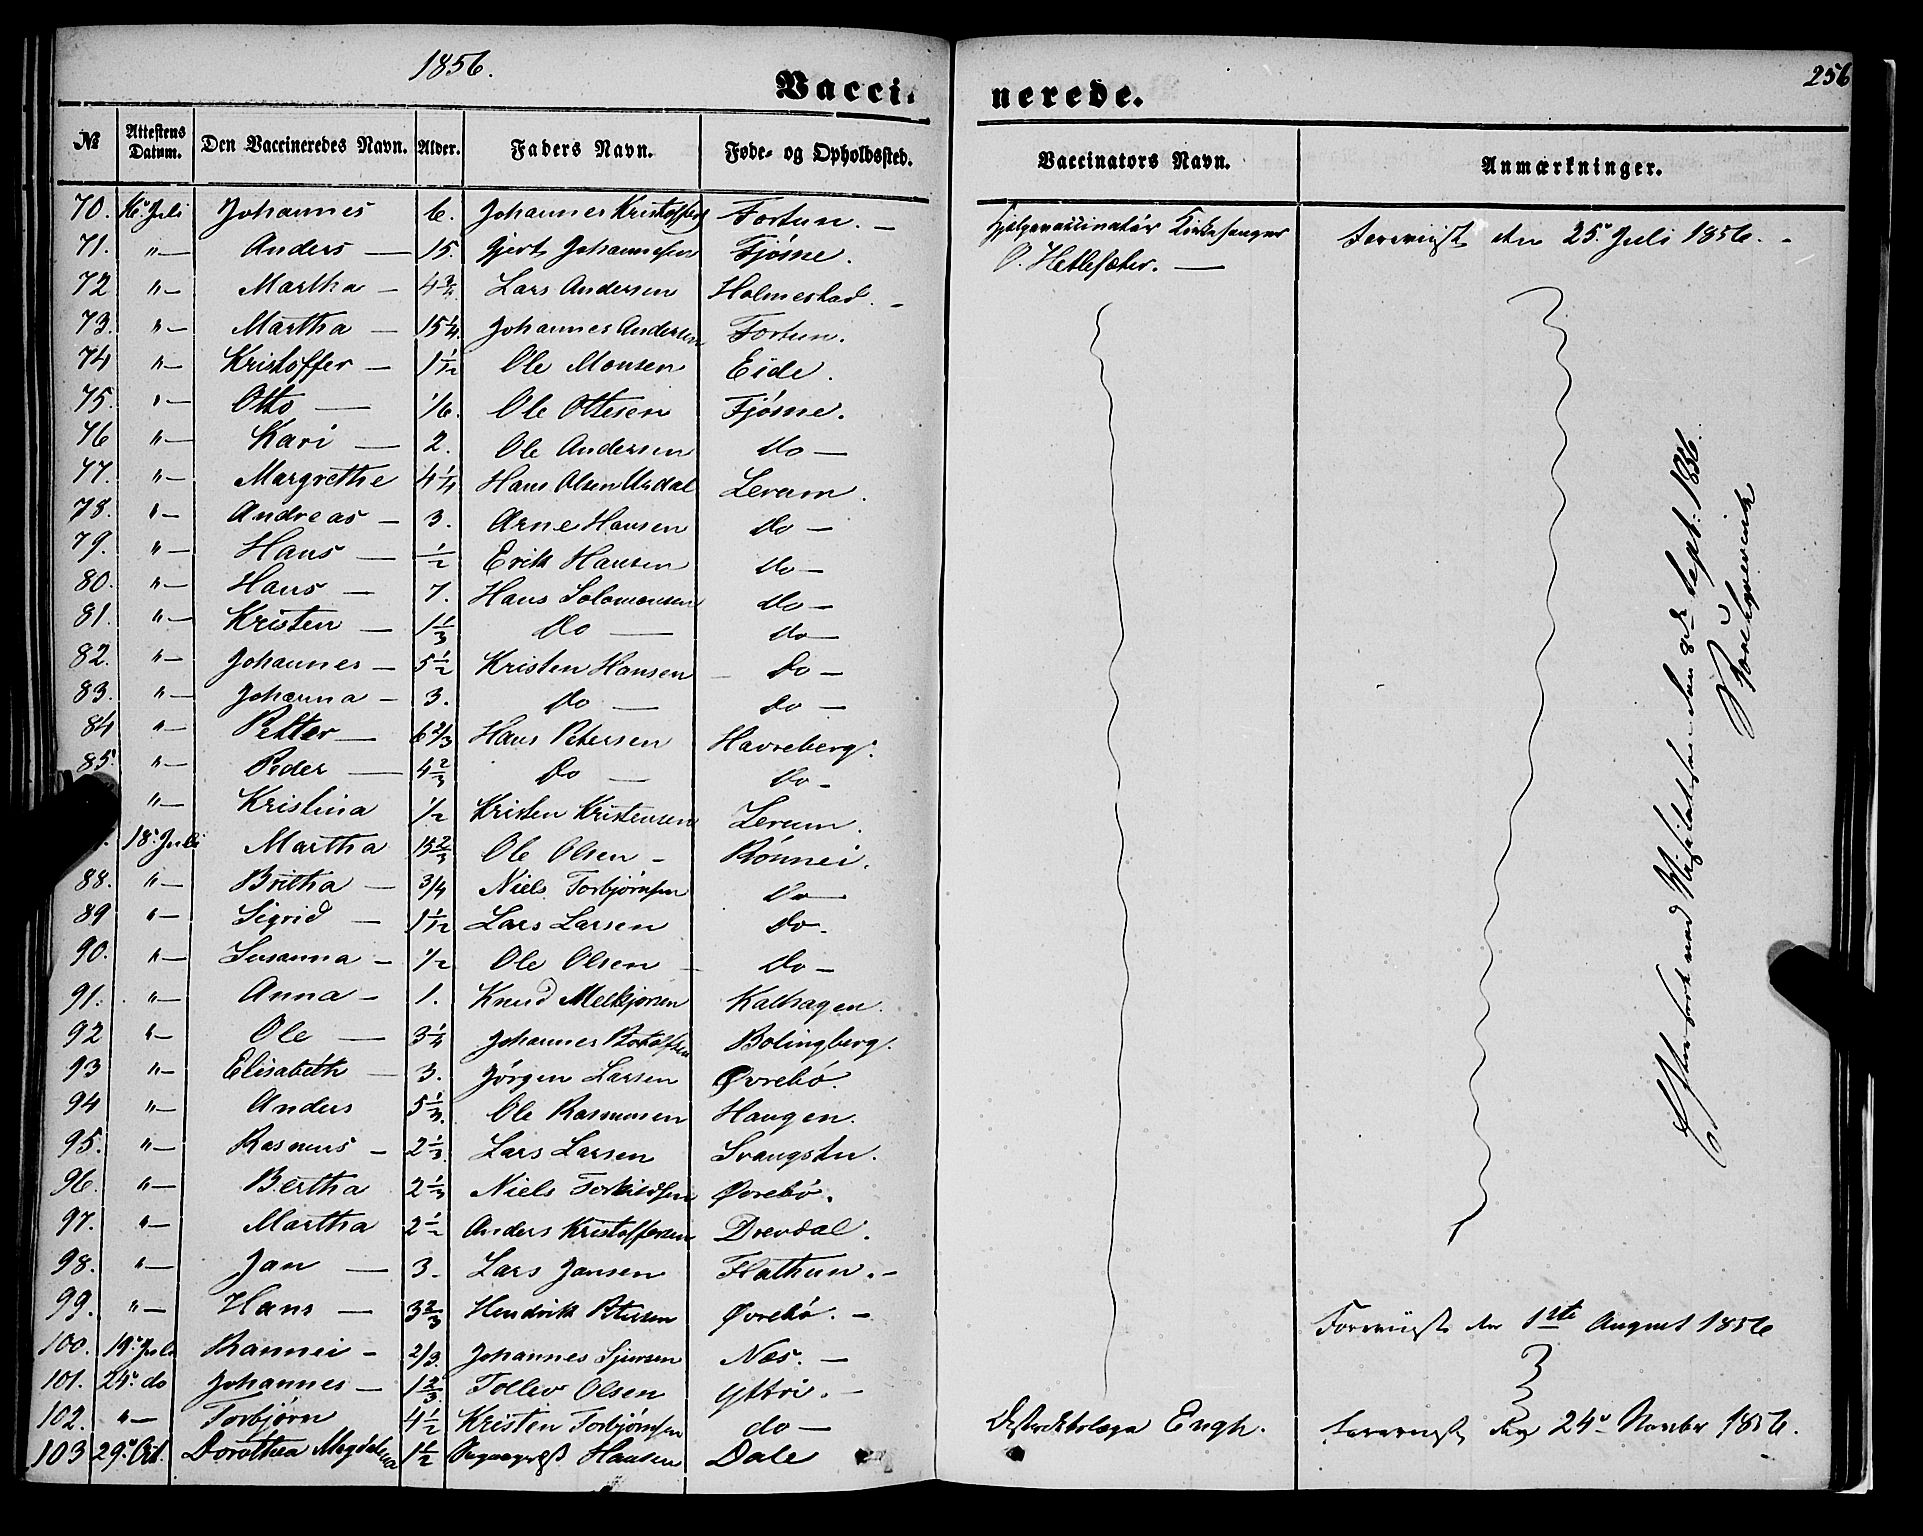 1856.
256
Vaccinerede.
№ Attestens Datum. Den Vaccineredes Navn. Alder. Faders Navn. Føde- og Opholdssted. Vaccinators Navn. Anmærkninger.
70. 16. Juli Johannes 6. Johannes Kristoffers Fortun. — Hjelpevaccinatør Kirkesanger den 25. Juli 1856. -
71. "— Anders — 15. Gjert Johannesen Fjøsne. O. Hetlesæter. —
72 "— Martha — 4 3/4 Lars Andersen Holmestad. -
73. "— Martha — 15 1/4 Johannes Andersen Fortun.
74 "— Kristoffer — 1 1/12 Ole Monsen Eide.
75. "— Otto — 1/6. Ole Ottesen Fjøsne.
76 "— Kari — 2. Ole Andersen do —
77. "— Margrethe 4 1/4 Hans Olsen Urdal Lerum.
78. "— Andreas — 3. Arne Hansen do —
79. "— Hans — 1/2 Erik Hansen do —
80. "— Hans — 7. Hans Solomonsen do —
81. "— Kristen — 1 1/3 do — do —
82. "— Johannes — 5 1/2 Kristen Hansen do —
83. "— Johanna — 3. do — do —
84 "— Petter — 6 2/3 Hans Petersen Havreberg.
85. "— Peder — 4 2/3 do — do -
"— Kristina 1/2 Kristen Kristensen Lerum.
18. Juli Martha 15 2/3 Ole Olsen - Rønnei.
88. "— Britha — 3/4 Niels Torbjørnsen do —
89 "— Sigrid — 1 1/12 Lars Larsen do -
90. "— Susanna — 1/2 Ole Olsen — do —
91. "— Anna — 1. Knud Melkjorsen Kalhagen.
92 "— Ole — 3 1/4 Johannes Botolfsen Bolingberg.
93 "— Elisabeth — 3. Jørgen Larsen Øvrebø.
94 "— Anders 5 1/3. Ole Rasmusen Haugen.
95. "— Rasmus — 2 1/3. Lars Larsen
96. "— Bertha 2 1/3 Niels Torkildsen Øvrebø.
97. "— Martha 2 1/2 Anders Kristoffersen Drevdal.
98. "— Jan — 3. Lars Jansen Flathun. -
99. "— Hans — 3 2/3 Hendrik Petersen Øvrebø. — den 1ste August 1856
100. 19. Juli Rannei — 2/3. Johannes Sjursen Næs. —
101. 24. do Johannes — 1 2/3. Tollev Olsen Yttri. -
102. "— Torbjørn 4 1/2 Kristen Torbjørnsen do —
103 29. Oct. Dorothea Magdalena 1 1/2 Hansen Dale Engh. den 24. Novbr 1856.
den 8de Septb. 1856.